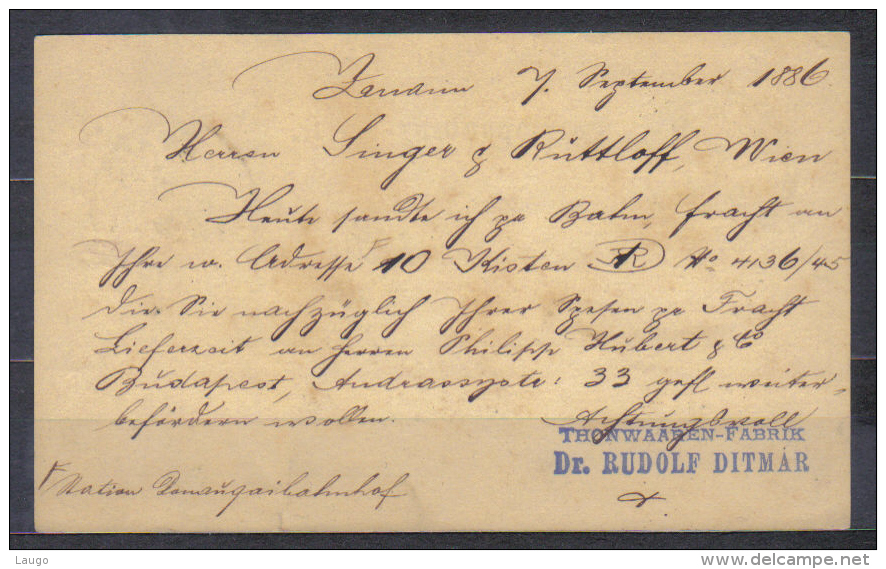 Znaim 7. September 1886.
Herren Singer & Rüttloff, Wien
Heute sandte ich pr Bahnfracht an
Ihre w. Adresse 10 Kisten R No 4136/45
die Sie nachzüglich Ihrer Spesen pr Fracht
Lieferzeit an Herren Philipp Hubert & Co
Budapest, Andrassystr: 33 gefl weiter-
befördern wollen. Achtungsvoll
THONWAAREN-FABRIK
Dr. RUDOLF DITMÁR
Station Donauquaibahnhof
Laugo
www.delcampe.net